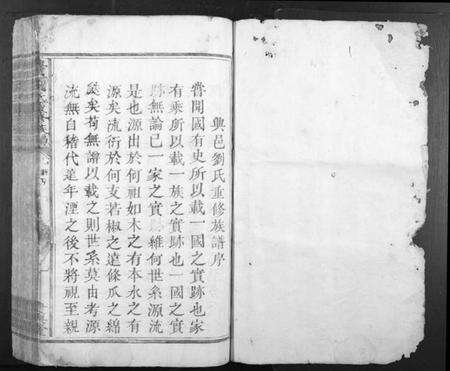 興邑劉氏重修族譜序
嘗聞國有史所以載一國之實跡也家
有乘所以載一族之實跡也一國之實
跡無論已一家之實跡維何世系源流
是也源出於何祖如木之有本水之有
源矣流衍於何支若椒之遠條瓜之綿
瓞矣苟無譜以載之則世系莫由考源
流無自稽代遠年湮之後不將視至親